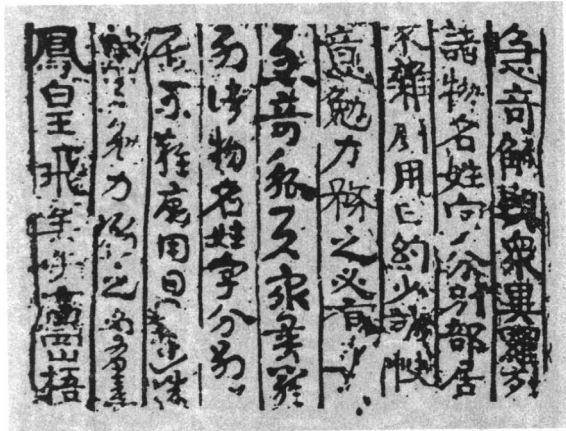 急奇觚與衆異羅列
諸物名姓字分別部居
不雜廁用日約少誠快
意勉力務之必有
急奇觚與衆異羅
列諸物名姓字分別
居不雜廁用日約少誠
意勉力務之必有憙
鳳皇飛于高罡梧